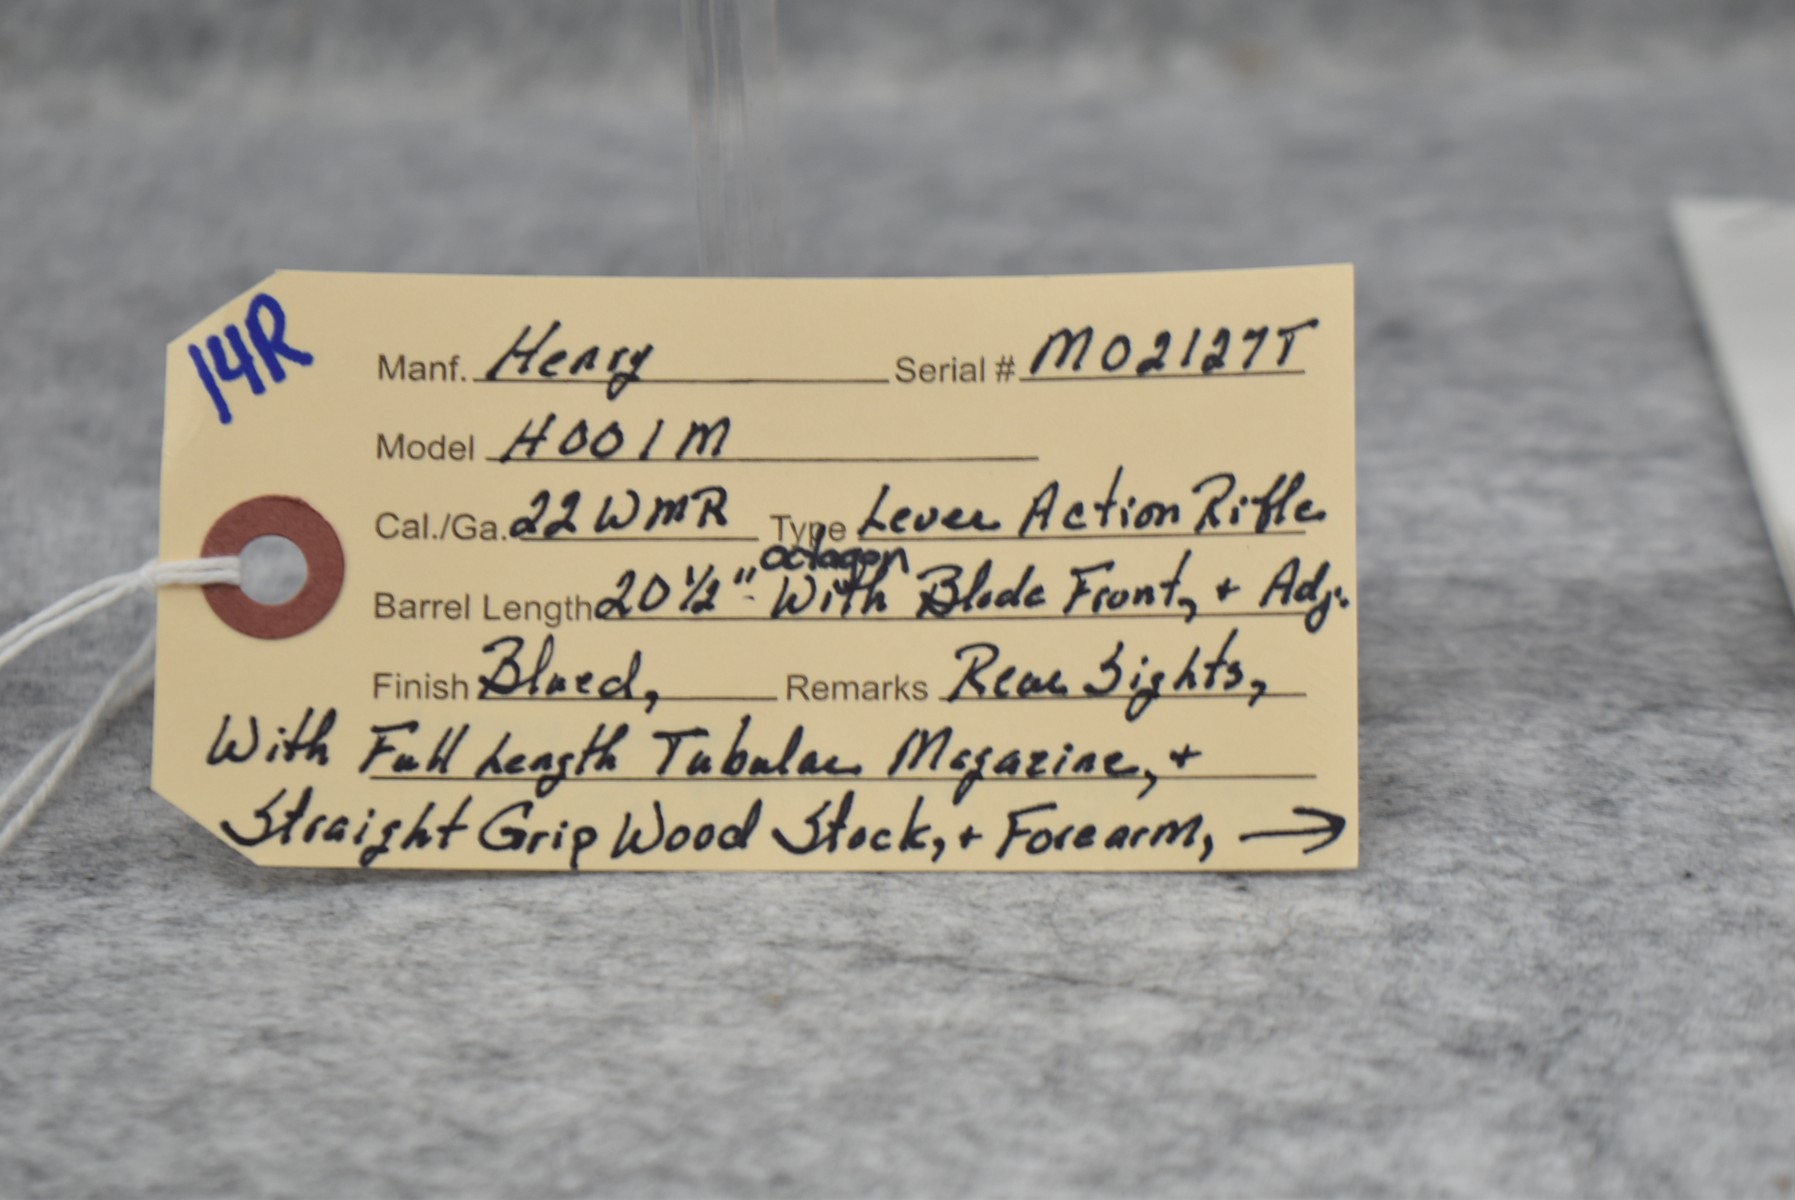 14R
Manf. Henry Serial # M02127T
Model H001M
Cal./Ga. 22 WMR Type Lever Action Rifle
octagon
Barrel Length 20 1/2" With Blade Front, + Adj.
Finish Blued, Remarks Rear Sights,
With Full Length Tubular Magazine, +
Straight Grip Wood Stock, + Forearm, →